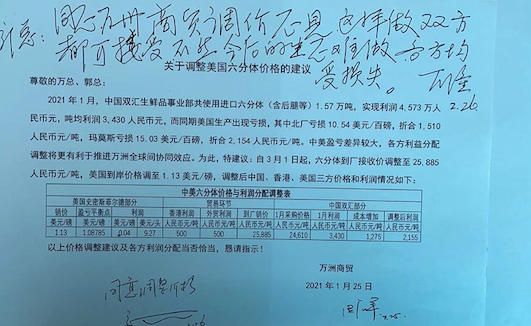 同意万州商贸调价意见 这样做双方
都可接受 不然今后的生意难做 各方均
受损失。
2.26.
关于调整美国六分体价格的建议
尊敬的万总、郭总：
2021 年 1 月，中国双汇生鲜品事业部共使用进口六分体（含后腿等）1.57 万吨，实现利润 4,573 万人
民币元，吨均利润 3,430 人民币元，而同期美国生产出现亏损，其中北厂亏损 10.54 美元/百磅，折合 1,510
人民币元/吨，玛莫斯亏损 15.03 美元/百磅，折合 2,154 人民币元/吨。中美盈亏差异较大，各方利益分配
调整将更有利于推进万洲全球间协同效应。为此，特建议：自 3 月 1 日起，六分体到厂接收价调整至 25,885
人民币元/吨，美国到岸价格调至 1.13 美元/磅，调整后中国、香港、美国三方价格和利润情况如下：
中美六分体价格与利润分配调整表
美国史密斯菲尔德部分 贸易环节 中国双汇部分
销价 盈亏平衡点 利润 香港利润 外贸利润 到厂销价 1月采购价格 1月利润 成本增加 调整后利润
美元/磅 美元/磅 美元/磅 美元/头 人民币元/吨 人民币元/吨 人民币元/吨 人民币元/吨 人民币元/吨 人民币元/吨 人民币元/吨
1.13 1.08785 0.04 9.27 500 500 25,885 24,610 3,430 1,275 2,155
以上价格调整建议及各方利润分配当否恰当，恳请指示！
万洲商贸
2021 年 1 月 25 日
同意调整价格